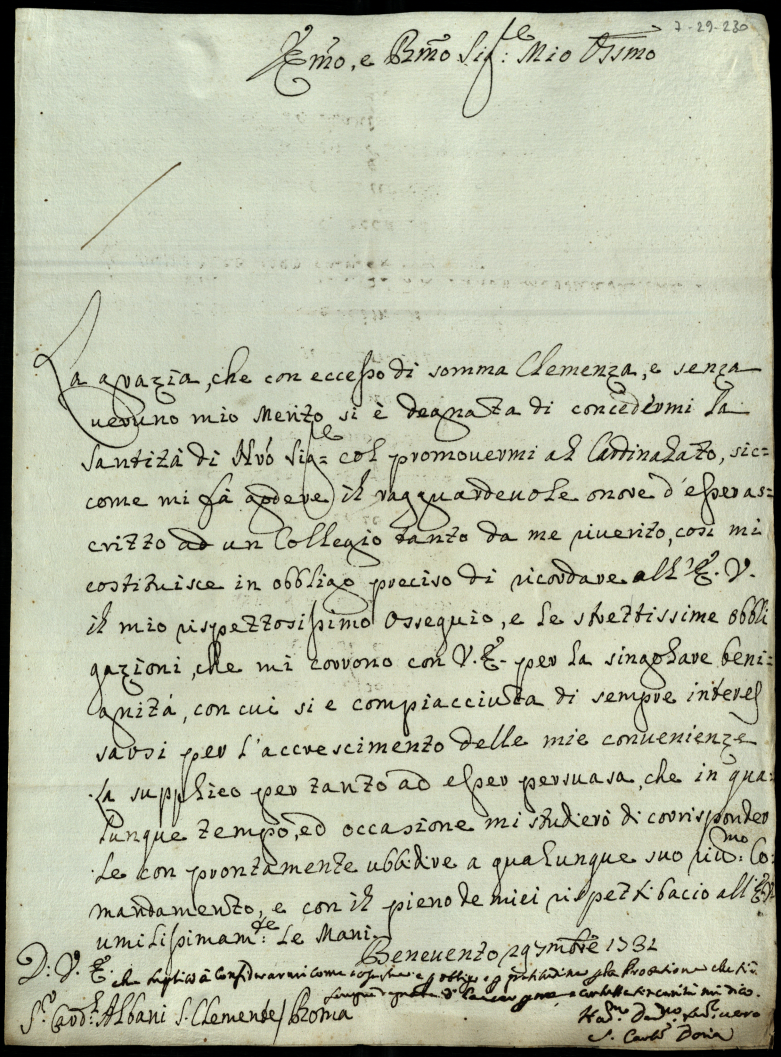 7-29-230
Em̃o, e Rm̃o Sig:re Mio Oss̃mo
La grazia, che con eccesso di somma Clemenza, e senza
ueruno mio Merito si è degnata di concedermi la
Santità di Nr̃o Sig=re col promouermi al Cardinalato, sic=
come mi fà godere il ragguardeuole onore d'esser as=
critto ad un Collegio tanto da me riuerito, così mi
costituisce in obbligo preciso di ricordare all'E. V.
il mio rispettosissimo Ossequio, e le strettissime obbli
gazioni, che mi corrono con V. E. per la singolare beni=
gnità, con cui si e compiacciuta di sempre interes
sarsi per l'accrescimento delle mie conuenienze
La supplico per tanto ad esser persuasa, che in qua=
lunque tempo, ed occasione mi studierò di corrisponder
Le con prontamente ubbidire a qualunque suo riu:mo Co=
mandamento, e con il pieno de miei rispetti bacio all'E. V.
umilissimam:te le Mani-
Beneuento 29 7mbre 1731
D: V. E. che supplico à Considerarmi come
S.r Card.l Albani S. Clemente / Roma
S. Card. Doria